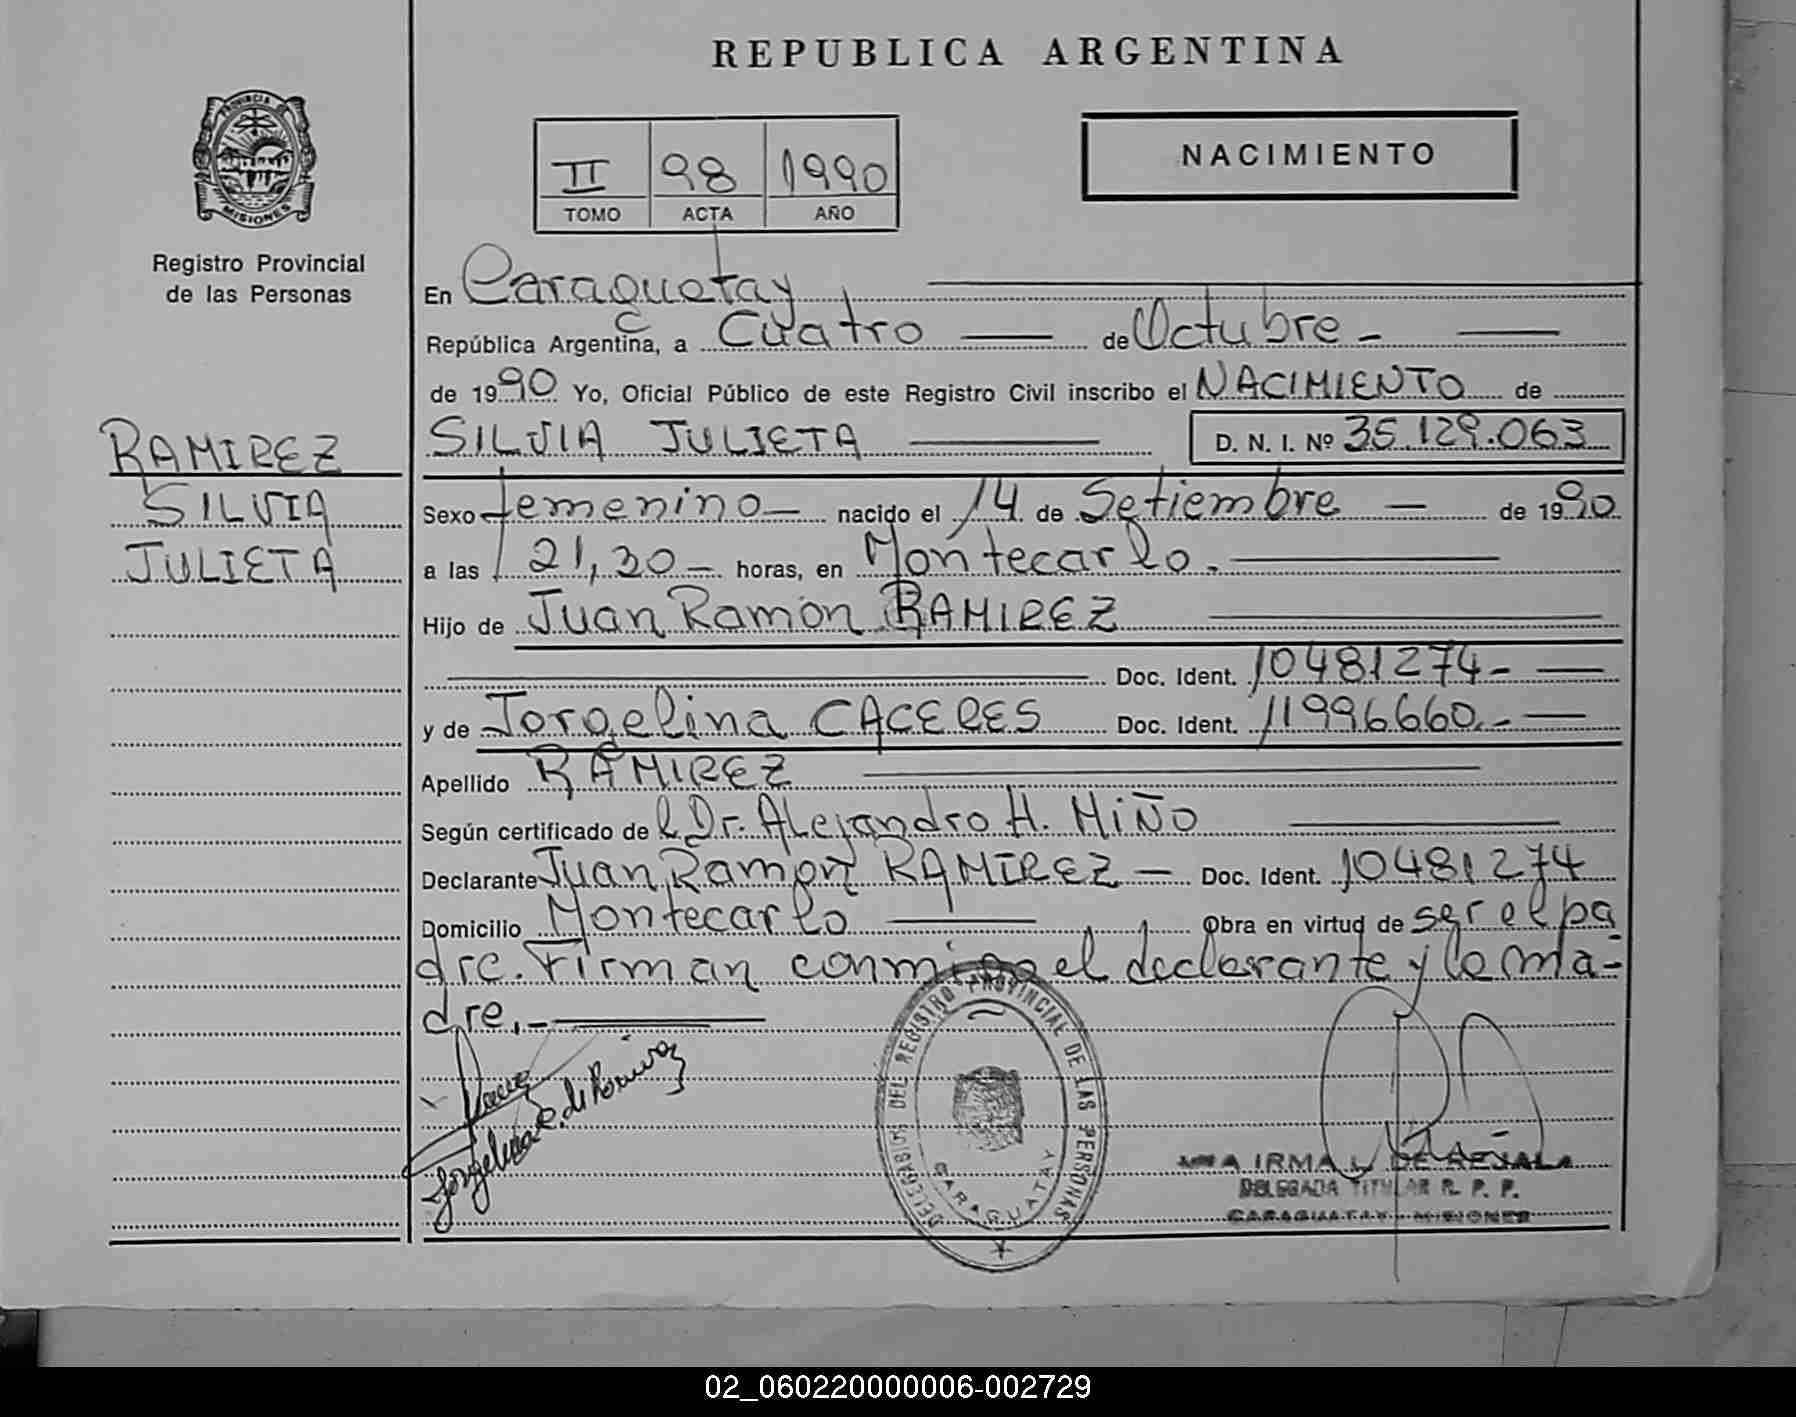 REPUBLICA ARGENTINA
PROVINCIA DE
MISIONES
Registro Provincial
de las Personas
II 98 1990
TOMO ACTA AÑO
NACIMIENTO
En Caraguatay
República Argentina, a Cuatro de Octubre -
de 1990 Yo, Oficial Público de este Registro Civil inscribo el NACIMIENTO de
SILVIA JULIETA D. N. I. Nº 35.129.063
RAMIREZ
SILVIA
JULIETA
Sexo femenino nacido el 14 de Setiembre de 1990
a las 21,30 - horas, en Montecarlo.
Hijo de Juan Ramon RAMIREZ
Doc. Ident. 10481274-
y de Jorgelina CACERES Doc. Ident. 11996660.-
Apellido RAMIREZ
Según certificado del Dr. Alejandro H. MIÑO
Declarante Juan Ramon RAMIREZ - Doc. Ident. 10481274
Domicilio Montecarlo Obra en virtud de ser el pa
dre. Firman conmigo el declarante y la ma-
dre.-
Jorgelina C. de Ramirez
DELEGACION DEL REGISTRO PROVINCIAL DE LAS PERSONAS
CARAGUATAY
IRMA L. DE
DELEGADA TITULAR R. P. P.
CARAGUATAY - MISIONES
02_060220000006-002729